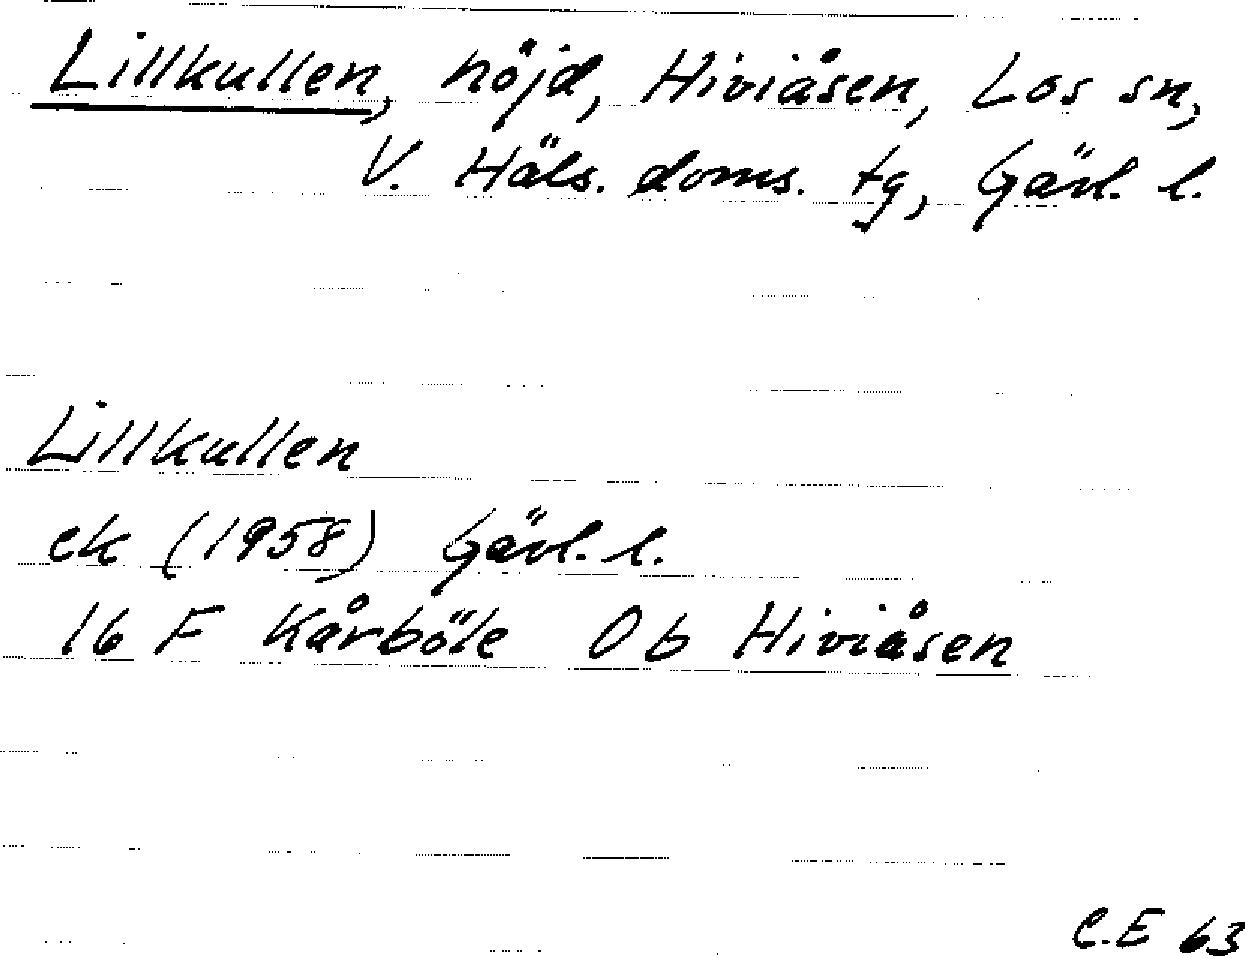 Lillkullen, höjd, Hiviåsen, Los sn,
V. Häls. doms. tg, Gävl. l.
Lillkullen
ek (1958) Gävl. l.
16 F Kårböle 0 b Hiviåsen
C.E 63